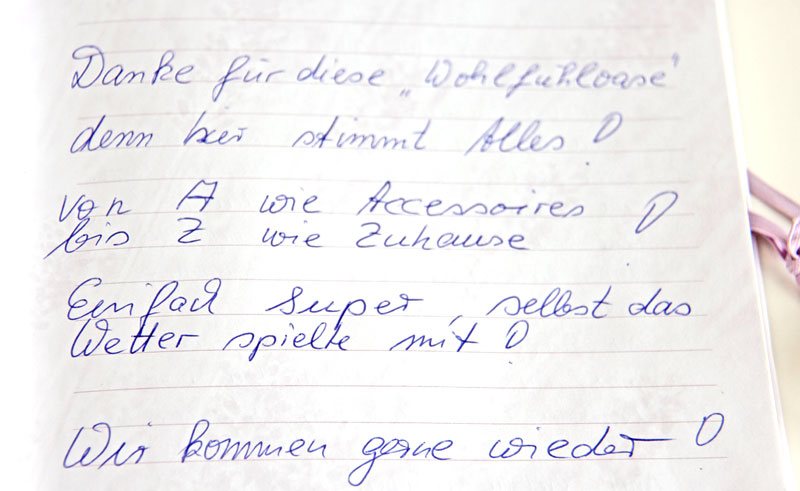 Danke für diese „Wohlfühloase"
denn hier stimmt Alles !
von A wie Accessoires !
bis Z wie Zuhause
Einfach super, selbst das
Wetter spielte mit !
Wir kommen gerne wieder !